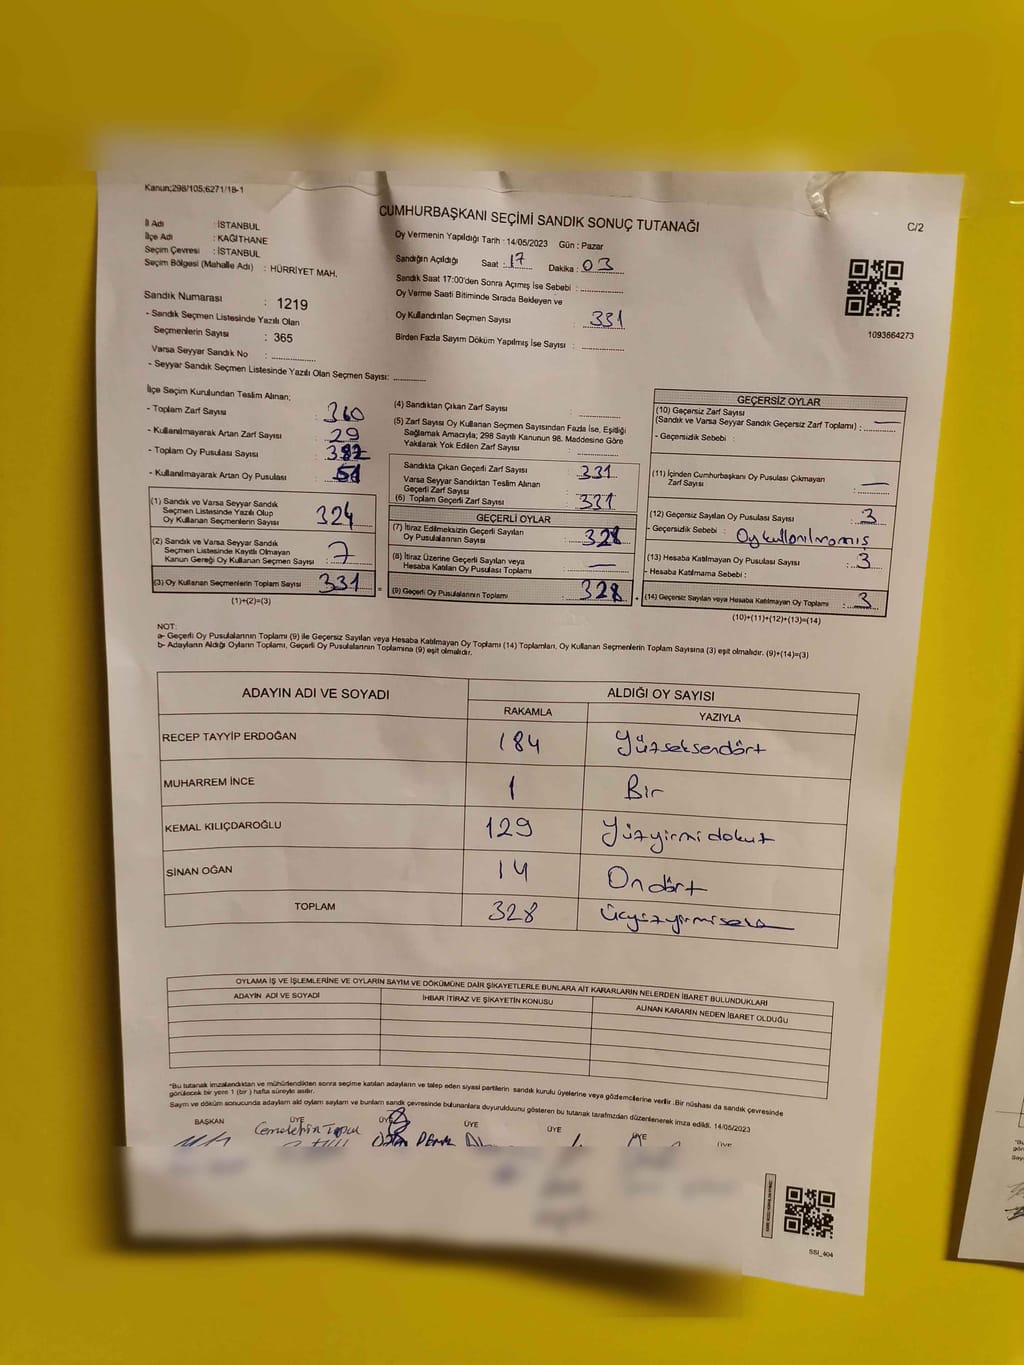 Kanun;298/105;6271/18-1
CUMHURBAŞKANI SEÇİMİ SANDIK SONUÇ TUTANAĞI
C/2
İl Adı : İSTANBUL
İlçe Adı : KAĞITHANE
Seçim Çevresi : İSTANBUL
Seçim Bölgesi (Mahalle Adı) : HÜRRİYET MAH.
Sandık Numarası : 1219
- Sandık Seçmen Listesinde Yazılı Olan
Seçmenlerin Sayısı : 365
Varsa Seyyar Sandık No :
- Seyyar Sandık Seçmen Listesinde Yazılı Olan Seçmen Sayısı:
Oy Vermenin Yapıldığı Tarih : 14/05/2023 Gün : Pazar
Sandığın Açıldığı Saat : 17 Dakika : 03
Sandık Saat 17:00'den Sonra Açımış İse Sebebi :
Oy Verme Saati Bitiminde Sırada Bekleyen ve
Oy Kullandırılan Seçmen Sayısı : 331
Birden Fazla Sayım Döküm Yapılmış İse Sayısı :
1093664273
İlçe Seçim Kurulundan Teslim Alınan;
- Toplam Zarf Sayısı : 360
- Kullanılmayarak Artan Zarf Sayısı : 29
- Toplam Oy Pusulası Sayısı : 382
- Kullanılmayarak Artan Oy Pusulası :
(1) Sandık ve Varsa Seyyar Sandık
Seçmen Listesinde Yazılı Olup
Oy Kullanan Seçmenlerin Sayısı : 324
(2) Sandık ve Varsa Seyyar Sandık
Seçmen Listesinde Kayıtlı Olmayan
Kanun Gereği Oy Kullanan Seçmen Sayısı : 7
(3) Oy Kullanan Seçmenlerin Toplam Sayısı : 331
(1)+(2)=(3)
(4) Sandıktan Çıkan Zarf Sayısı :
(5) Zarf Sayısı Oy Kullanan Seçmen Sayısından Fazla İse, Eşitliği
Sağlamak Amacıyla; 298 Sayılı Kanunun 98. Maddesine Göre
Yakılarak Yok Edilen Zarf Sayısı :
Sandıkta Çıkan Geçerli Zarf Sayısı : 331
Varsa Seyyar Sandıktan Teslim Alınan
Geçerli Zarf Sayısı :
(6) Toplam Geçerli Zarf Sayısı : 331
GEÇERLİ OYLAR
(7) İtiraz Edilmeksizin Geçerli Sayılan
Oy Pusulalarının Sayısı : 328
(8) İtiraz Üzerine Geçerli Sayılan veya
Hesaba Katılan Oy Pusulası Toplamı : —
(9) Geçerli Oy Pusulalarının Toplamı : 328
GEÇERSİZ OYLAR
(10) Geçersiz Zarf Sayısı
(Sandık ve Varsa Seyyar Sandık Geçersiz Zarf Toplamı) : —
- Geçersizlik Sebebi :
(11) İçinden Cumhurbaşkanı Oy Pusulası Çıkmayan
Zarf Sayısı : —
(12) Geçersiz Sayılan Oy Pusulası Sayısı : 3
- Geçersizlik Sebebi : Oy kullanılmamış
(13) Hesaba Katılmayan Oy Pusulası Sayısı : 3
- Hesaba Katılmama Sebebi :
(14) Geçersiz Sayılan veya Hesaba Katılmayan Oy Toplamı : 3
(10)+(11)+(12)+(13)=(14)
NOT:
a- Geçerli Oy Pusulalarının Toplamı (9) ile Geçersiz Sayılan veya Hesaba Katılmayan Oy Toplamı (14) Toplamları, Oy Kullanan Seçmenlerin Toplam Sayısına (3) eşit olmalıdır. (9)+(14)=(3)
b- Adayların Aldığı Oyların Toplamı, Geçerli Oy Pusulalarının Toplamına (9) eşit olmalıdır.
ADAYIN ADI VE SOYADI ALDIĞI OY SAYISI
RAKAMLA YAZIYLA
RECEP TAYYİP ERDOĞAN 184 Yüzseksendört
MUHARREM İNCE 1 Bir
KEMAL KILIÇDAROĞLU 129 Yüzyirmi dokuz
SİNAN OĞAN 14 Ondört
TOPLAM 328
OYLAMA İŞ VE İŞLEMLERİNE VE OYLARIN SAYIM VE DÖKÜMÜNE DAİR ŞİKAYETLERLE BUNLARA AİT KARARLARIN NELERDEN İBARET BULUNDUKLARI
ADAYIN ADI VE SOYADI İHBAR İTİRAZ VE ŞİKAYETİN KONUSU ALINAN KARARIN NEDEN İBARET OLDUĞU
*Bu tutanak imzalandıktan ve mühürlendikten sonra seçime katılan adayların ve talep eden siyasi partilerin sandık kurulu üyelerine veya gözlemcilerine verilir. Bir nüshası da sandık çevresinde
görülecek bir yere 1 (bir) hafta süreyle asılır.
Sayım ve döküm sonucunda adayların aldığı oyların sayıları ve bunların sandık çevresinde bulunanlara duyurulduunu gösteren bu tutanak tarafımızdan düzenlenerek imza edildi. 14/05/2023
BAŞKAN ÜYE ÜYE ÜYE ÜYE ÜYE ÜYE
SSİ_404